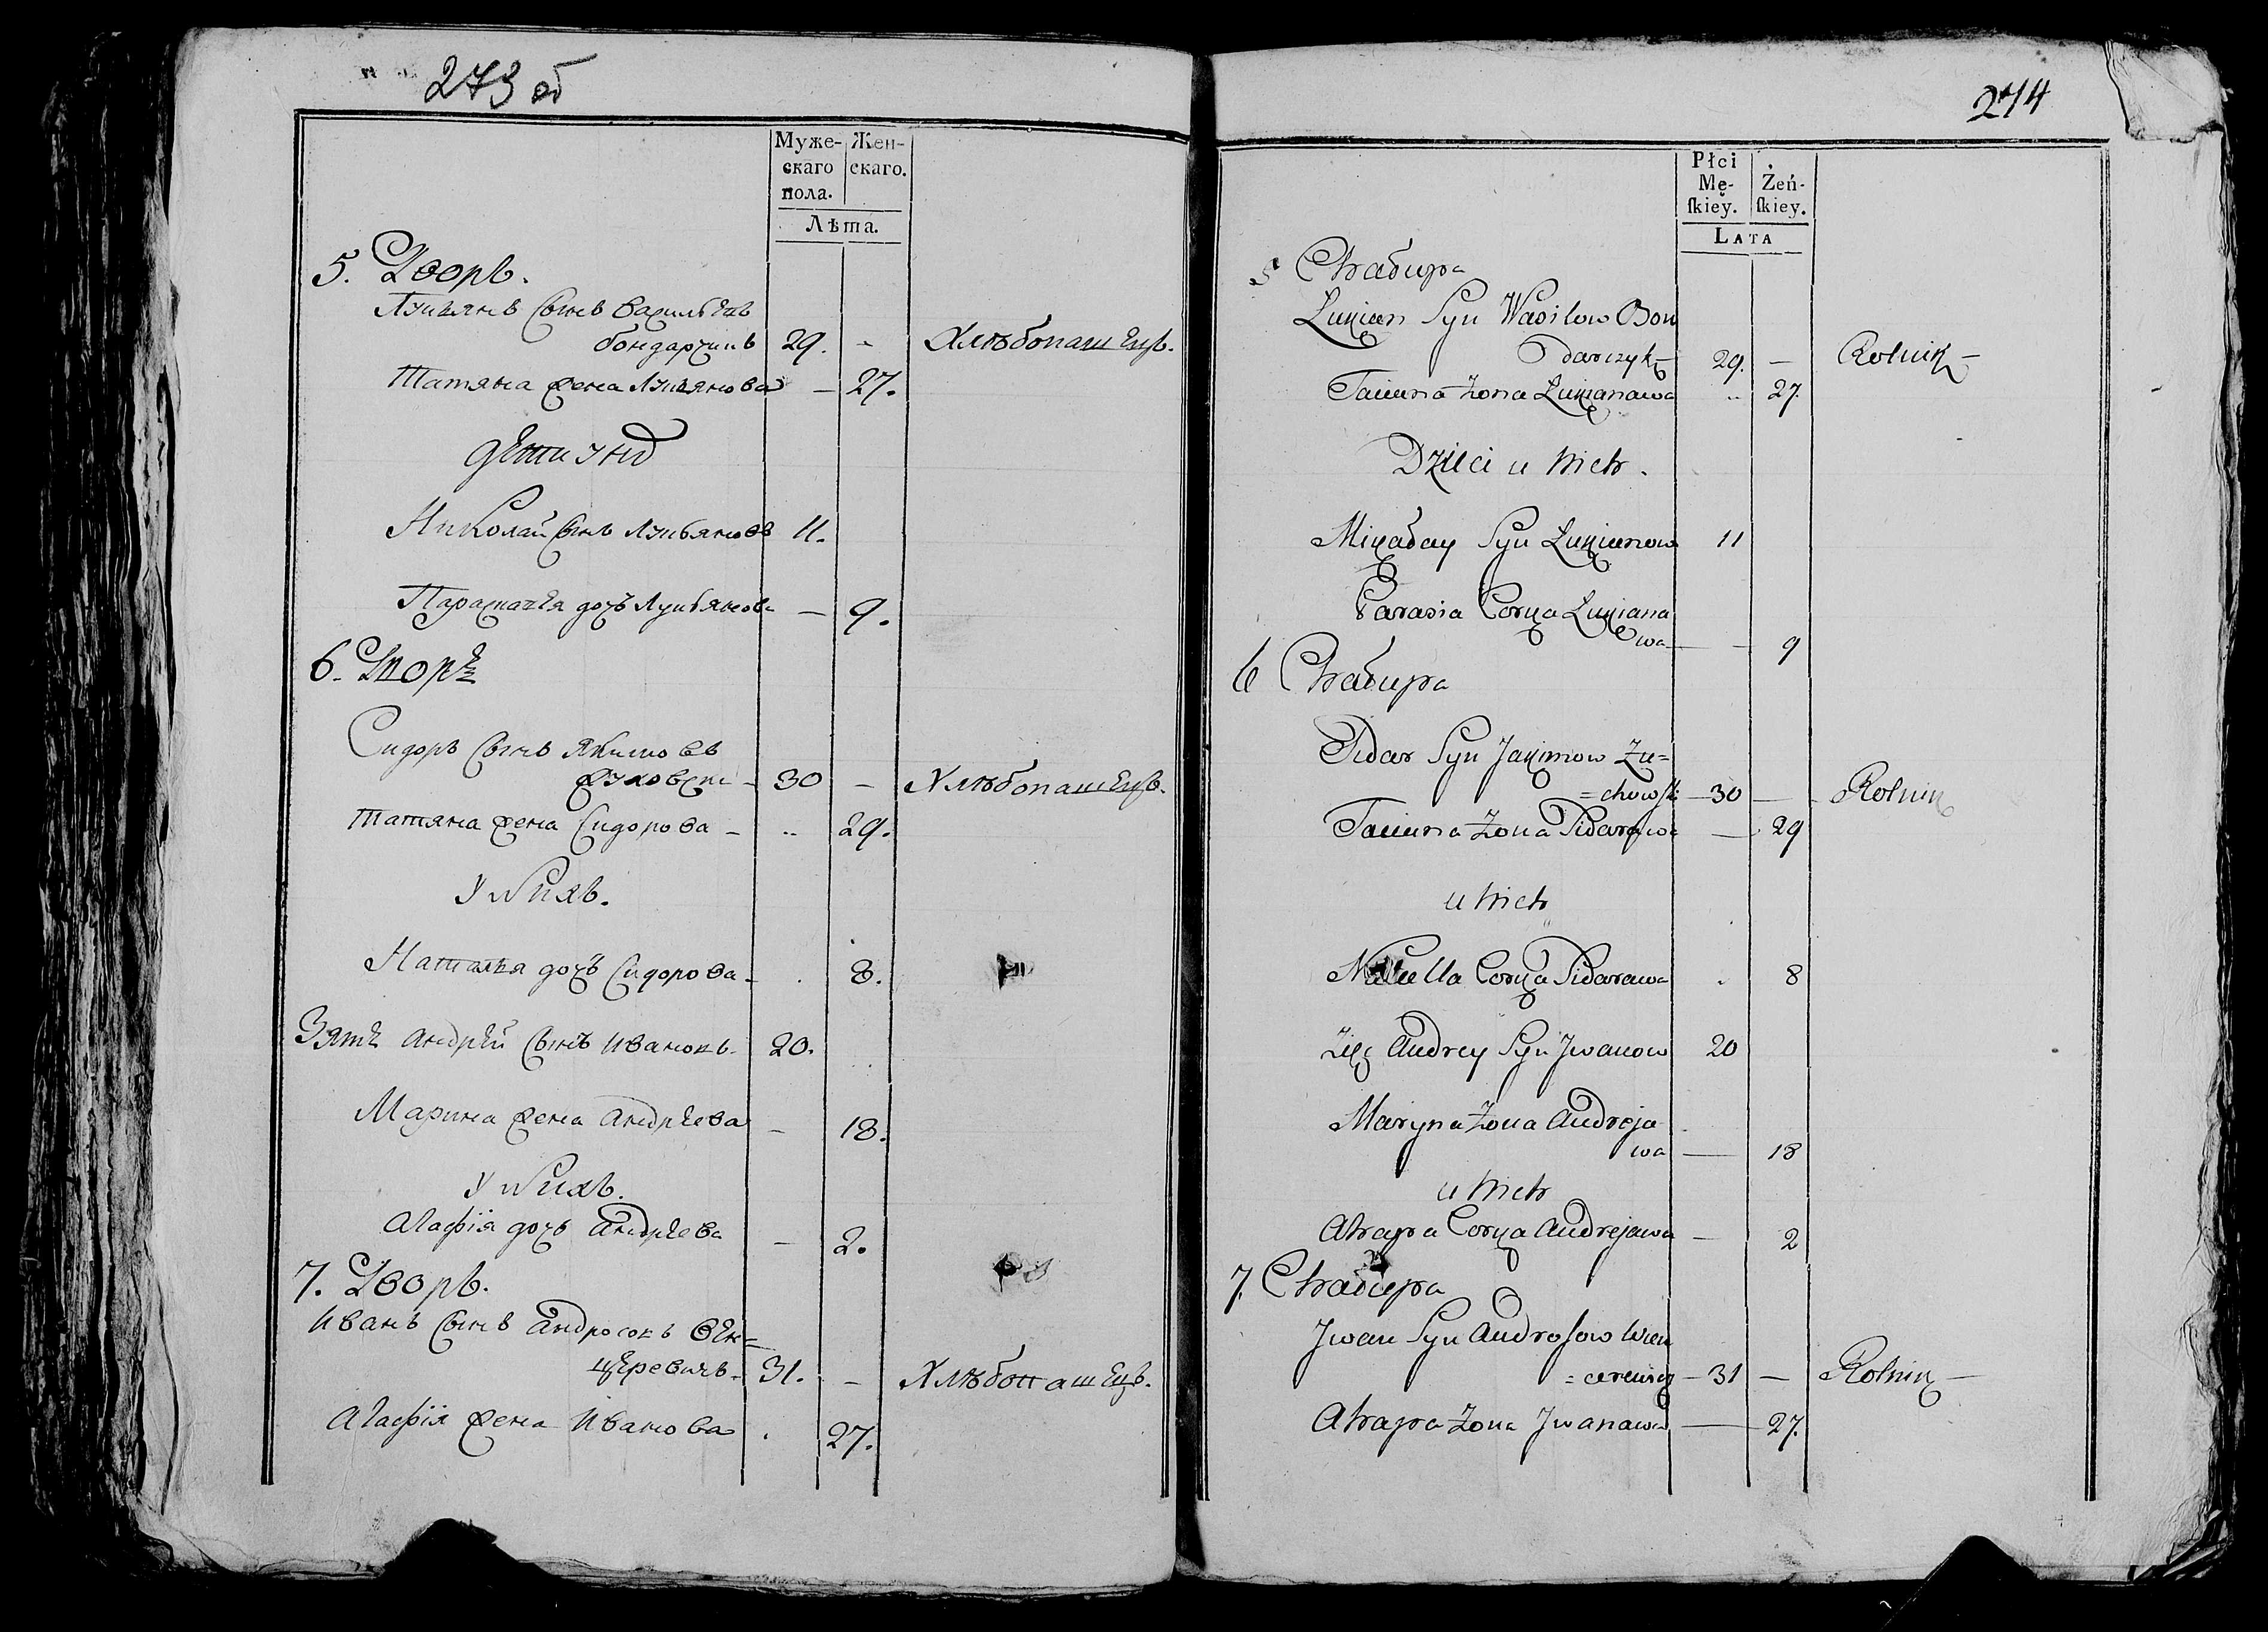 273 об
Муже-
скаго
пола.
Жен-
скаго.
Лѣта.
5. Дворъ.
Лукьянъ сынъ Васильевъ
бондарчикъ 29. - Хлѣбопашецъ.
Татяна жена Лукьянова - 27.
дети у нихъ
Николай сынъ Лукьяновъ 11.
дочъ Лукьянова - 9.
6. Дворъ
Сидоръ сынъ Якимовъ
30 - Хлѣбопашецъ.
Татяна жена Сидорова - 29.
У нихъ.
Наталья дочъ Сидорова - 8.
Зять Андрей сынъ Ивановъ. 20.
Марина жена Андреева - 18.
У нихъ.
Агафія дочъ Андреева - 2.
7. Дворъ.
Иванъ сынъ Андросовъ Вен=
церевичъ - 31. - Хлѣбопашецъ.
Агафія жена Иванова 27.
274
Płci
Mę-
skiey.
Żeń-
skiey.
LATA
5 Chałupa
Łukian Syn Wasilow Bon
darczyk 29. - Rolnik -
Taciana Żona Łukianawa 27.
Dzieci u nich.
Mikałay Syn Łukianow 11
Parasia Corka Łukiana
wa - 9
6 Chałupa
Sidar Syn Jakimow Żu=
=chowski - 30 - Rolnik
Taciana Żona Sidarawa - 29
u nich
Corka Sidarawa 8
Zięć Andrey Syn Jwanow 20
Maryna Żona Andreja
wa - 18
u nich
Ahapa Corka Andrejawa - 2
7. Chałupa
Jwan Syn Androsow Wen
=cerewicz - 31 - Rolnik -
Ahapa Żona Jwanawa - 27.